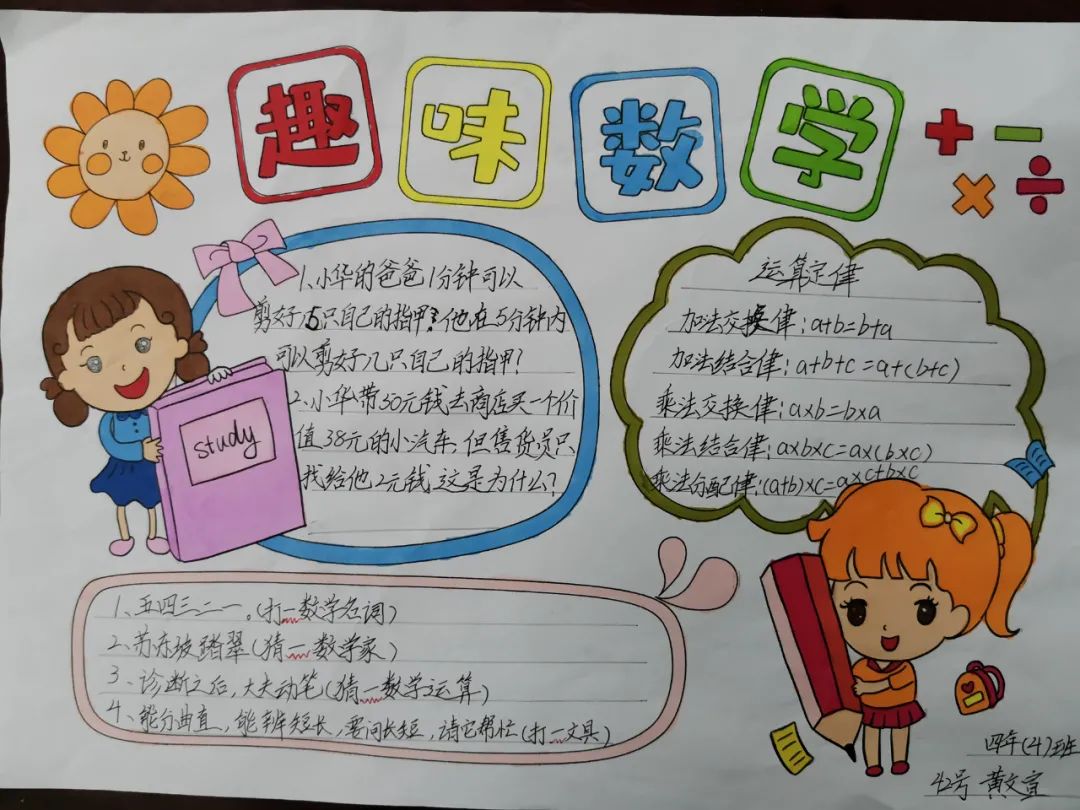 趣味数学
1、小华的爸爸1分钟可以
剪好5只自己的指甲?他在5分钟内
可以剪好几只自己的指甲?
2、小华带50元钱去商店买一个价
值38元的小汽车,但售货员只
找给他2元钱,这是为什么?
study
运算定律
加法交换律:a+b=b+a
加法结合律:a+b+c=a+(b+c)
乘法交换律:a×b=b×a
乘法结合律:a×b×c=a×(b×c)
乘法分配律:(a+b)×c=a×c+b×c
1、五四三二一。(打一数学名词)
2、苏东坡踏翠(猜一数学家)
3、诊断之后,大夫动笔(猜一数学运算)
4、能分曲直,能辨短长,要问长短,请它帮忙(打一文具)
四年(4)班
42号 黄文宣